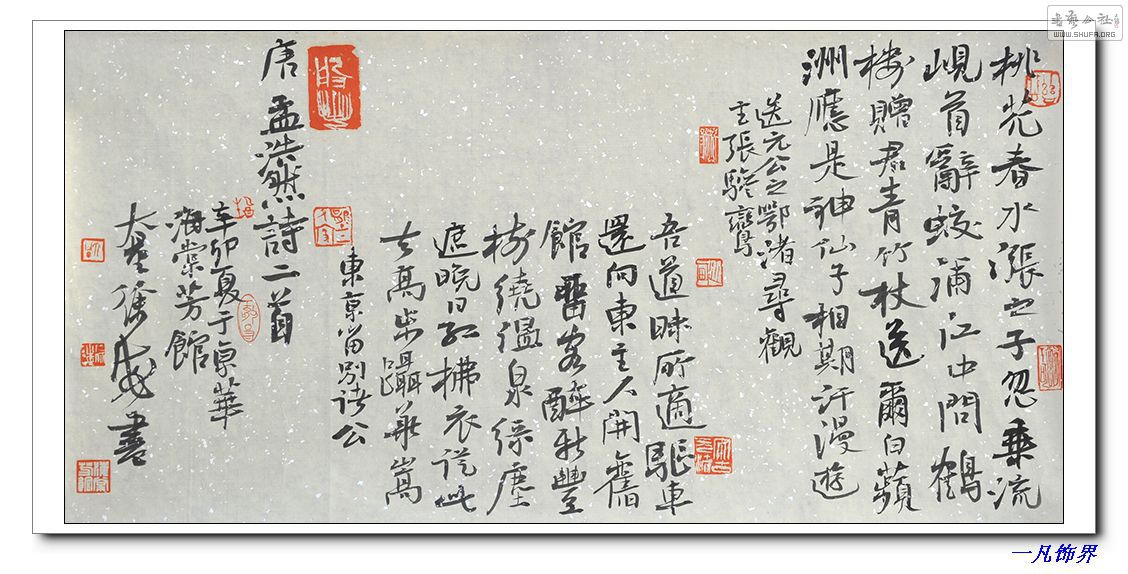 書藝公社
WWW.SHUFA.ORG
桃花春水漲之子忽乘流
峴首辭蛟浦江中問鶴
樓贈君青竹杖送爾白蘋
洲應是神仙子相期汗漫遊
送元公之鄂渚尋觀
主張驂鸞
吾道昧所適驅車
還向東主人開舊
館留客醉新豐
樹繞溫泉綠塵
遮晚日紅拂衣從此
去高步躡華嵩
東京留別諸公
唐孟浩然詩二首
辛卯夏于京華
海棠芳館
徐書
一凡饰界